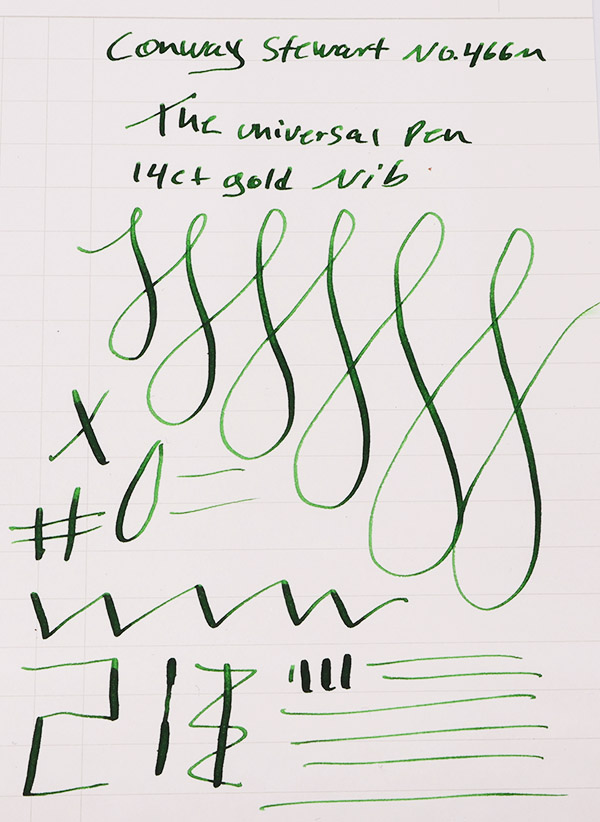 Conway Stewart No.466M
The universal Pen
14ct gold Nib
X
# 0 =